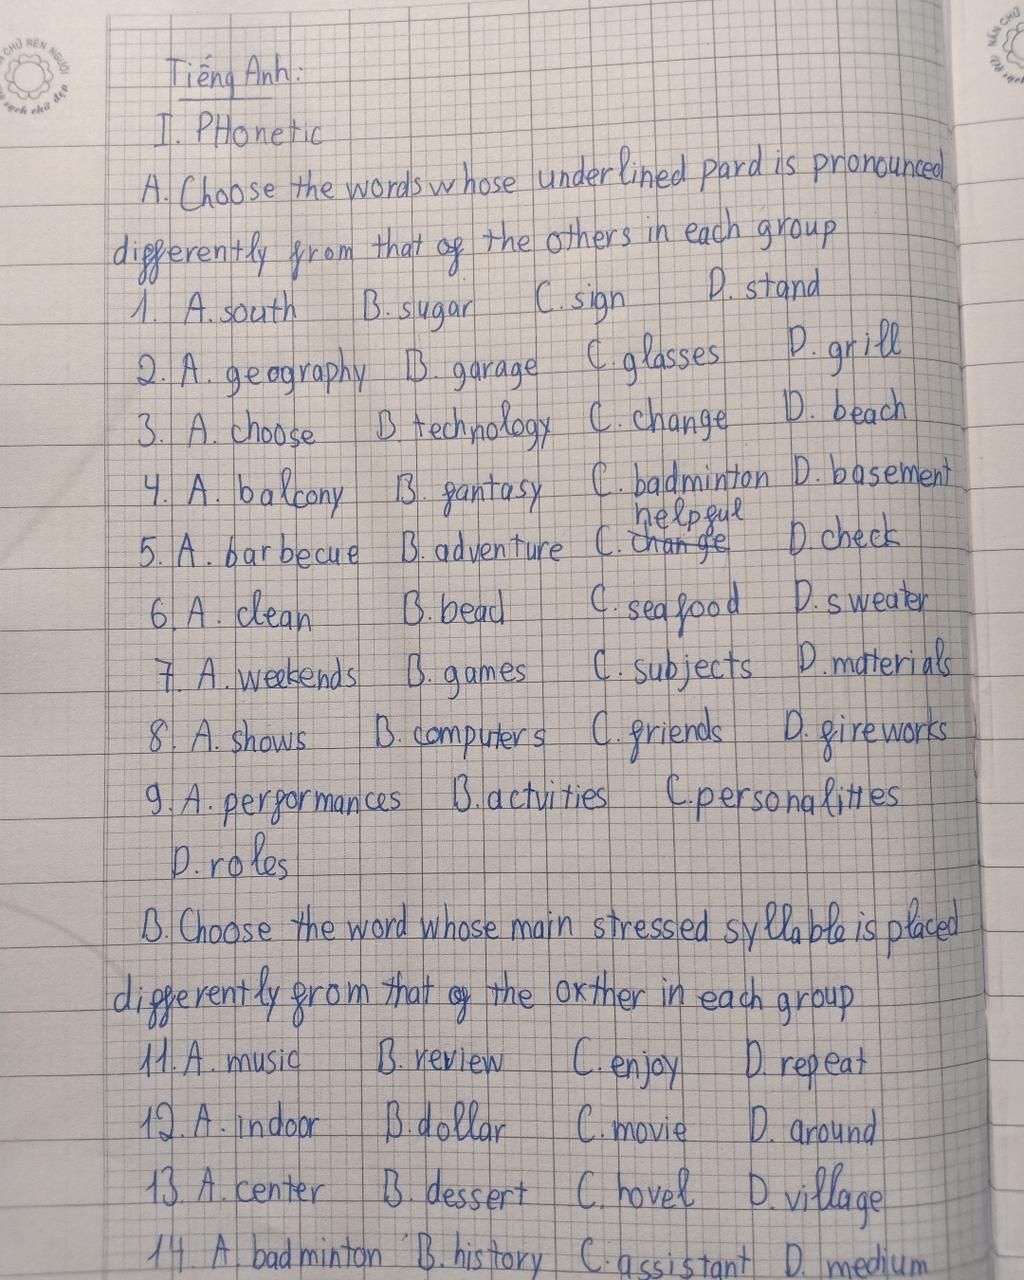 CHỮ RÈN NGƯỜI
sạch chữ đẹp
NẮN CHỮ
Vở sạch
Tiếng Anh:
I. PHonetic
A. Choose the words whose underlined pard is pronounced
differently from that of the others in each group
1. A. south B. sugar C. sign D. stand
2. A. geography B. garage C. glasses D. grill
3. A. choose B technology C. change D. beach
4. A. balcony B. fantasy C. badminton D. basement
helpful
5. A. barbecue B. adventure C. change D. check
6. A. clean B. bead C. seafood D. sweater
7. A. weekends B. games C. subjects D. materials
8. A. shows B. computers C. friends D. fireworks
9. A. performances B. actvities C. personalities
D. roles
B. Choose the word whose main stressed syllable is placed
differently from that of the oxther in each group
11. A. music B. review C. enjoy D. repeat
12. A. indoor B. dollar C. movie D. around
13. A. center B. dessert C. hovel D. village
14. A. badminton B. history C. assistant D. medium